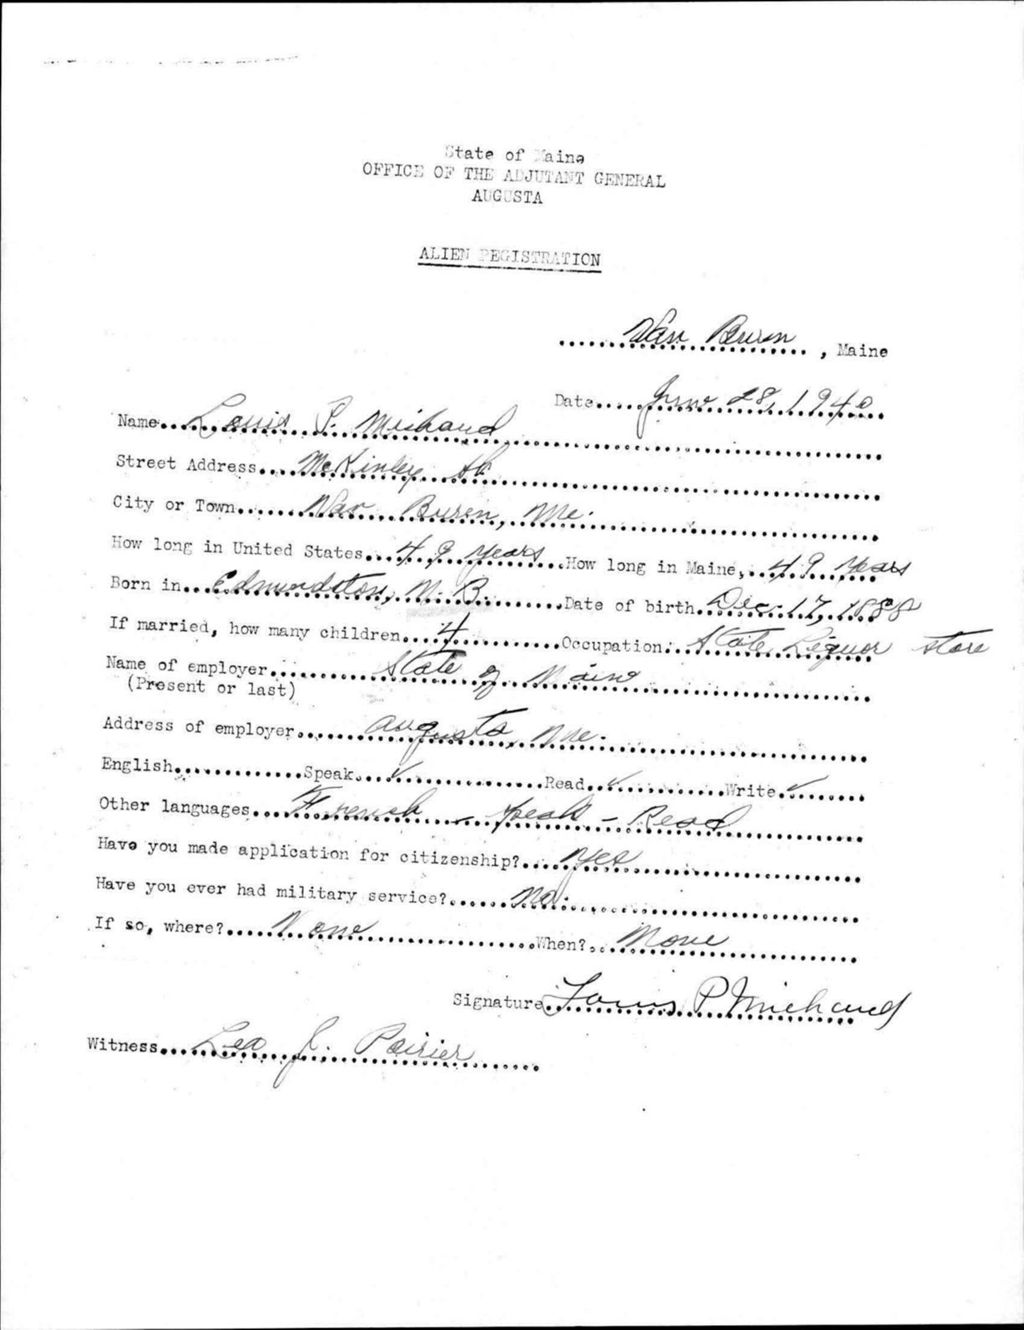 State of Maine
OFFICE OF THE ADJUTANT GENERAL
AUGUSTA
ALIEN REGISTRATION
Van Buren, Maine
Date June 28, 1940
Name Louis P. Michaud
Street Address McKinley St
City or Town Van Buren, Me.
How long in United States 49 years How long in Maine 49 years
Born in Edmundston, N. B. Date of birth Dec. 17, 1888
If married, how many children 4 Occupation State Liquor store
Name of employer State of Maine
(Present or last)
Address of employer Augusta, Me.
English Speak ✓ Read ✓ Write ✓
Other languages French - Speak - Read
Have you made application for citizenship? Yes
Have you ever had military service? No.
If so, where? None When? None
Signature Louis P Michaud
Witness Leo J. Poirier